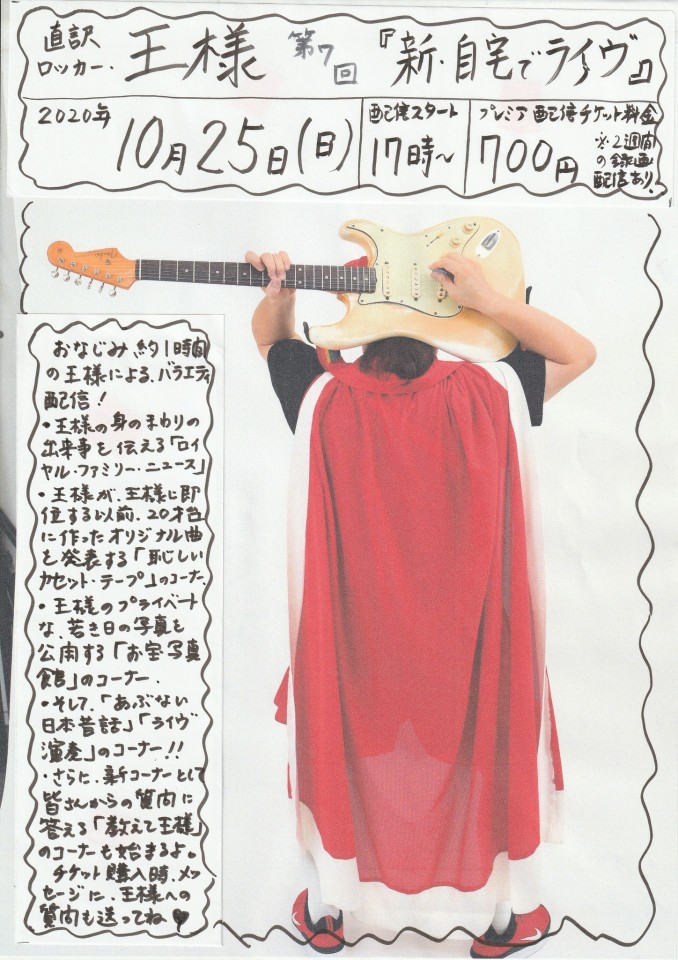 直訳
ロッカー・王様 第7回 『新・自宅でライヴ』
2020年
10月25日(日)
配信スタート
17時〜
プレミア配信チケット料金
700円
※2週間
の録画
配信あり!
Fender
おなじみ約1時間
の王様による、バラエティ
配信!
・王様の身のまわりの
出来事を伝える「ロイ
ヤル・ファミリー・ニュース」
・王様が、王様に即
位する以前、20才台
に作ったオリジナル曲
を発表する「恥しい
カセット・テープ」のコーナー、
・王様のプライベート
な、若き日の写真を
公開する「お宝写真
館」のコーナー、
・そして、「あぶない
日本昔話」「ライヴ
演奏」のコーナー!!
・さらに、新コーナーとして
皆さんからの質問に
答える「教えて王様」
のコーナーも始まるよ。
チケット購入時、メッ
セージに、王様への
質問も送ってね♥